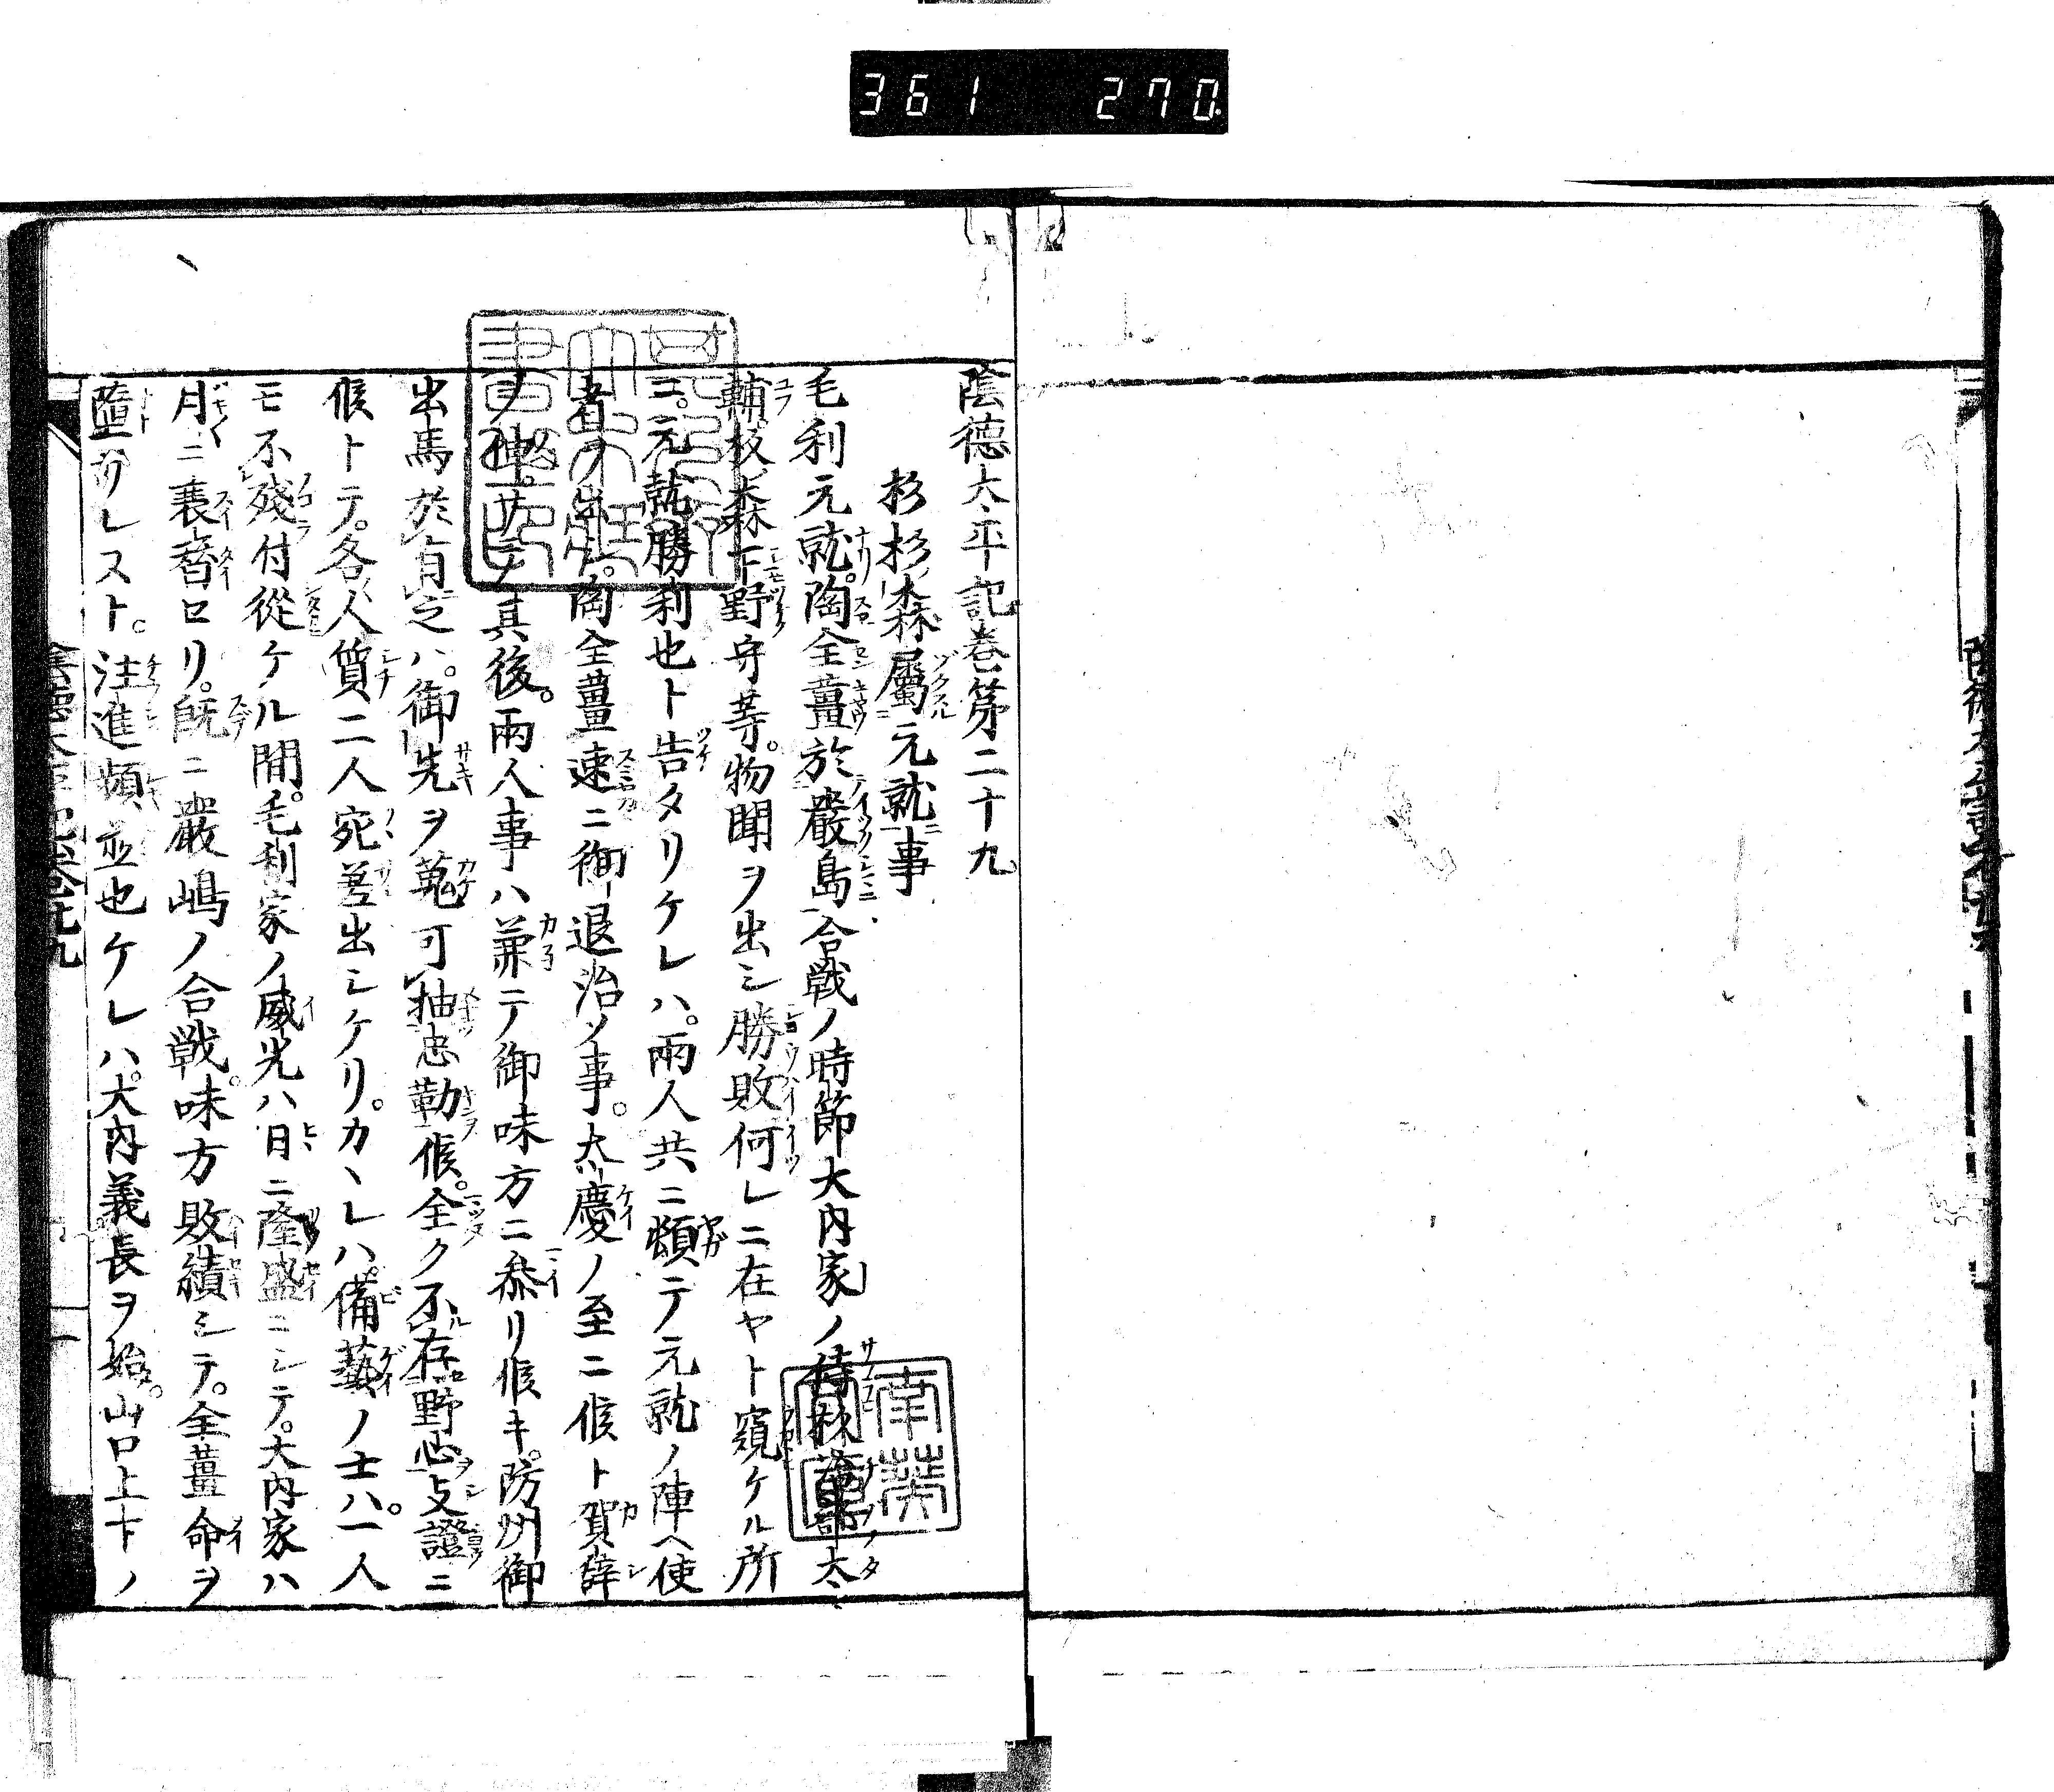 361 270
陰德太平記卷第二十九
杉杉森屬元就事
毛利元就陶全薑於嚴島合戰ノ時節大內家ノ侍杉治部太
輔杉森下野守等。物聞ヲ出シ勝敗何レニ在ヤト窺ケル所
ニ。元就勝利也ト告タリケレハ。兩人共ニ頓テ元就ノ陣ヘ使
者ヲ出シ。陶全薑速ニ御退治ノ事。大慶ノ至ニ候ト賀辭
ヲ伸。サテ其後。兩人事ハ兼テ御味方ニ參リ候キ。防州御
出馬於有之ハ。御先ヲ蒐可抽忠勤候。全ク不存野心支證ニ
候トテ。各人質二人宛差出シケリ。カヽレハ。備藝ノ士ハ。一人
モ不殘付從ケル間。毛利家ノ威光ハ日ニ隆盛ニシテ。大內家ハ
月ニ衰替セリ。既ニ嚴嶋ノ合戰。味方敗績シテ。全薑命ヲ
隕サレスト。注進頻並也ケレハ。大內義長ヲ始。山口上下ノ
陰德太平記卷廿九
一